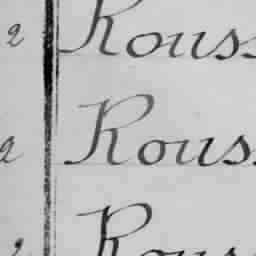 2 Rouss
2 Rous
2 Rous